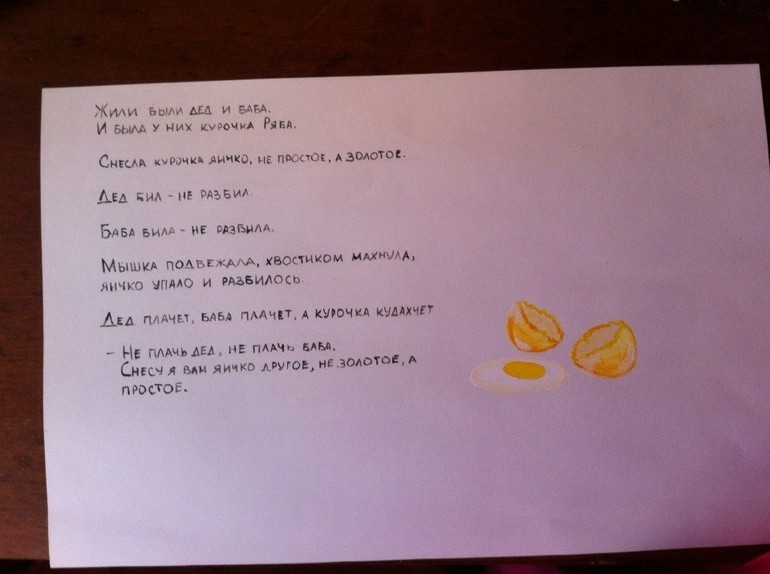 Жили были дед и баба.
И была у них курочка Ряба.
Снесла курочка яичко, не простое, а золотое.
Дед бил - не разбил.
Баба била - не разбила.
Мышка подбежала, хвостиком махнула,
яичко упало и разбилось.
Дед плачет, баба плачет, а курочка кудахчет
- Не плачь дед, не плачь баба.
Снесу я вам яичко другое, не золотое, а
простое.